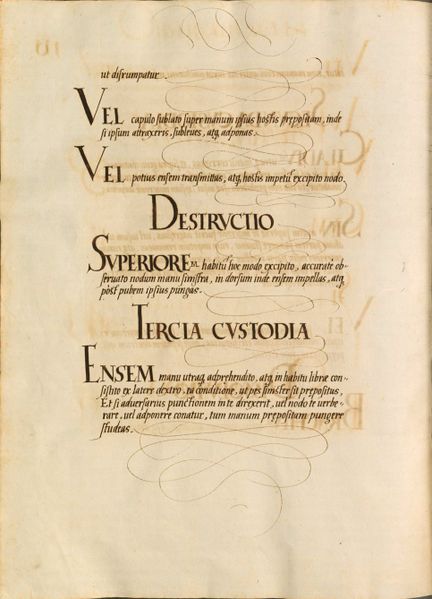 ut disrumpatur.
VEL capulo sublato super manum ipsius hostis prepositam, inde
si ipsum atraxeris, subleues, atq, adponas.
VEL potius ensem transmittas, atq, hostis impetū excipito nodo.
DESTRVCTIO
SVPERIOREM habitū hoc modo excipito, accurate ob-
seruato nodum manu sinistra, in dorsum inde ensem impellas, atq
pōst pubem ipsius pungas.
TERCIA CVSTODIA
ENSEM manu utraq, adprehendito, atq, in habitu librae con-
sistito ex latere dextro, ea conditione, ut pes sinister sit prepositus,
Et si aduersarius punctionem in te direxerit, uel nodo te uerbe-
rare, uel adponere conatur, tum manum prepositam pungere
studeas.